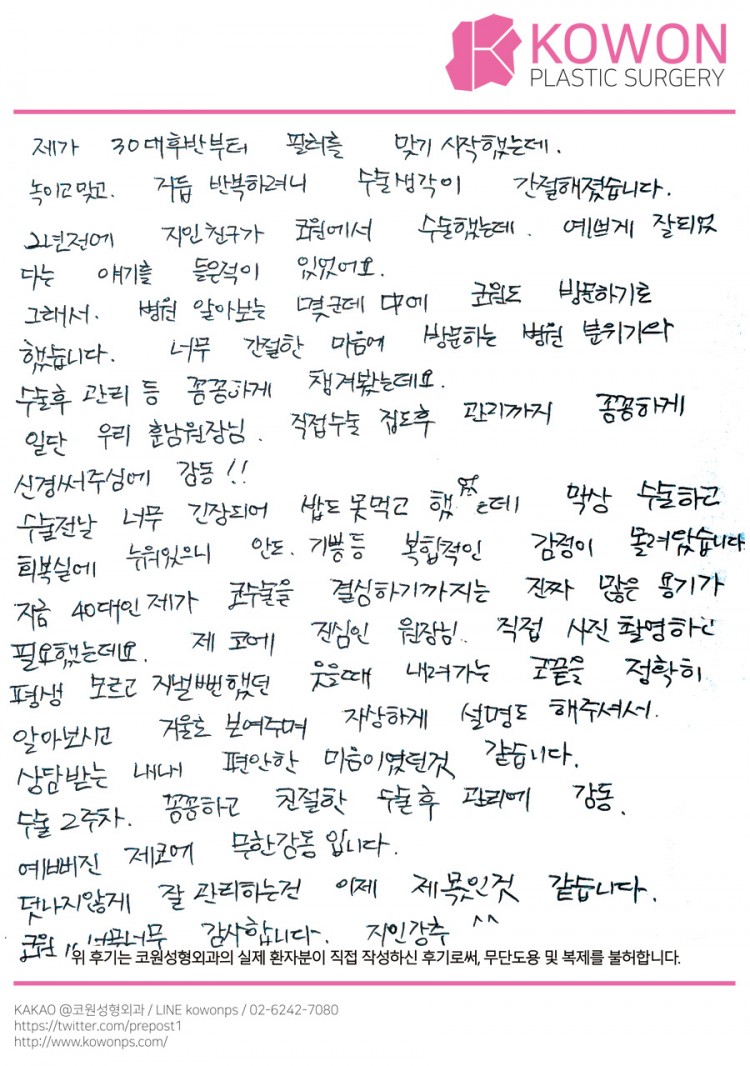 KOWON
PLASTIC SURGERY
제가 30대후반부터 필러를 맞기 시작했는데.
녹이고 맞고. 거듭 반복하려니 수술생각이 간절해졌습니다.
2년전에 지인친구가 코원에서 수술했는데. 예쁘게 잘되었
다는 얘기를 들은적이 있었어요.
그래서. 병원 알아보는 몇군데 中에 코원도 방문하기로
했습니다. 너무 간절한 마음에 방문하는 병원 분위기와
수술후 관리 등 꼼꼼하게 챙겨봤는데요.
일단 우리 훈남원장님. 직접수술 집도후 관리까지 꼼꼼하게
신경써주심에 감동!!
수술전날 너무 긴장되어 밥도 못먹고 했었는데 막상 수술하고
회복실에 누워있으니 안도. 기쁨등 복합적인 감정이 몰려왔습니다
지금 40대인 제가 코수술을 결심하기까지는 진짜 많은 용기가
필요했는데요. 제 코에 진심인 원장님. 직접 사진 촬영하신
평생 모르고 지낼뻔했던 웃을때 내려가는 코끝을 정확히
알아보시고 거울로 보여주며 자상하게 설명도 해주셔서.
상담받는 내내 편안한 마음이였던것 같습니다.
수술 2주차. 꼼꼼하고 친절한 수술후 관리에 감동.
예뻐진 제코에 무한감동입니다.
덧나지않게 잘 관리하는건 이제 제몫인것 같습니다.
코원 너무너무 감사합니다. 지인강추 ^^
위 후기는 코원성형외과의 실제 환자분이 직접 작성하신 후기로써, 무단도용 및 복제를 불허합니다.
KAKAO @코원성형외과 / LINE kowonps / 02-6242-7080
https://twitter.com/prepost1
http://www.kowonps.com/